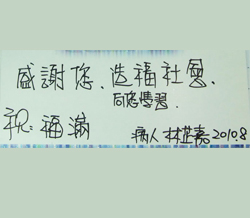 感謝您、造福社會、
向您學習.
祝：福滿
病人 林芷嘉 20108